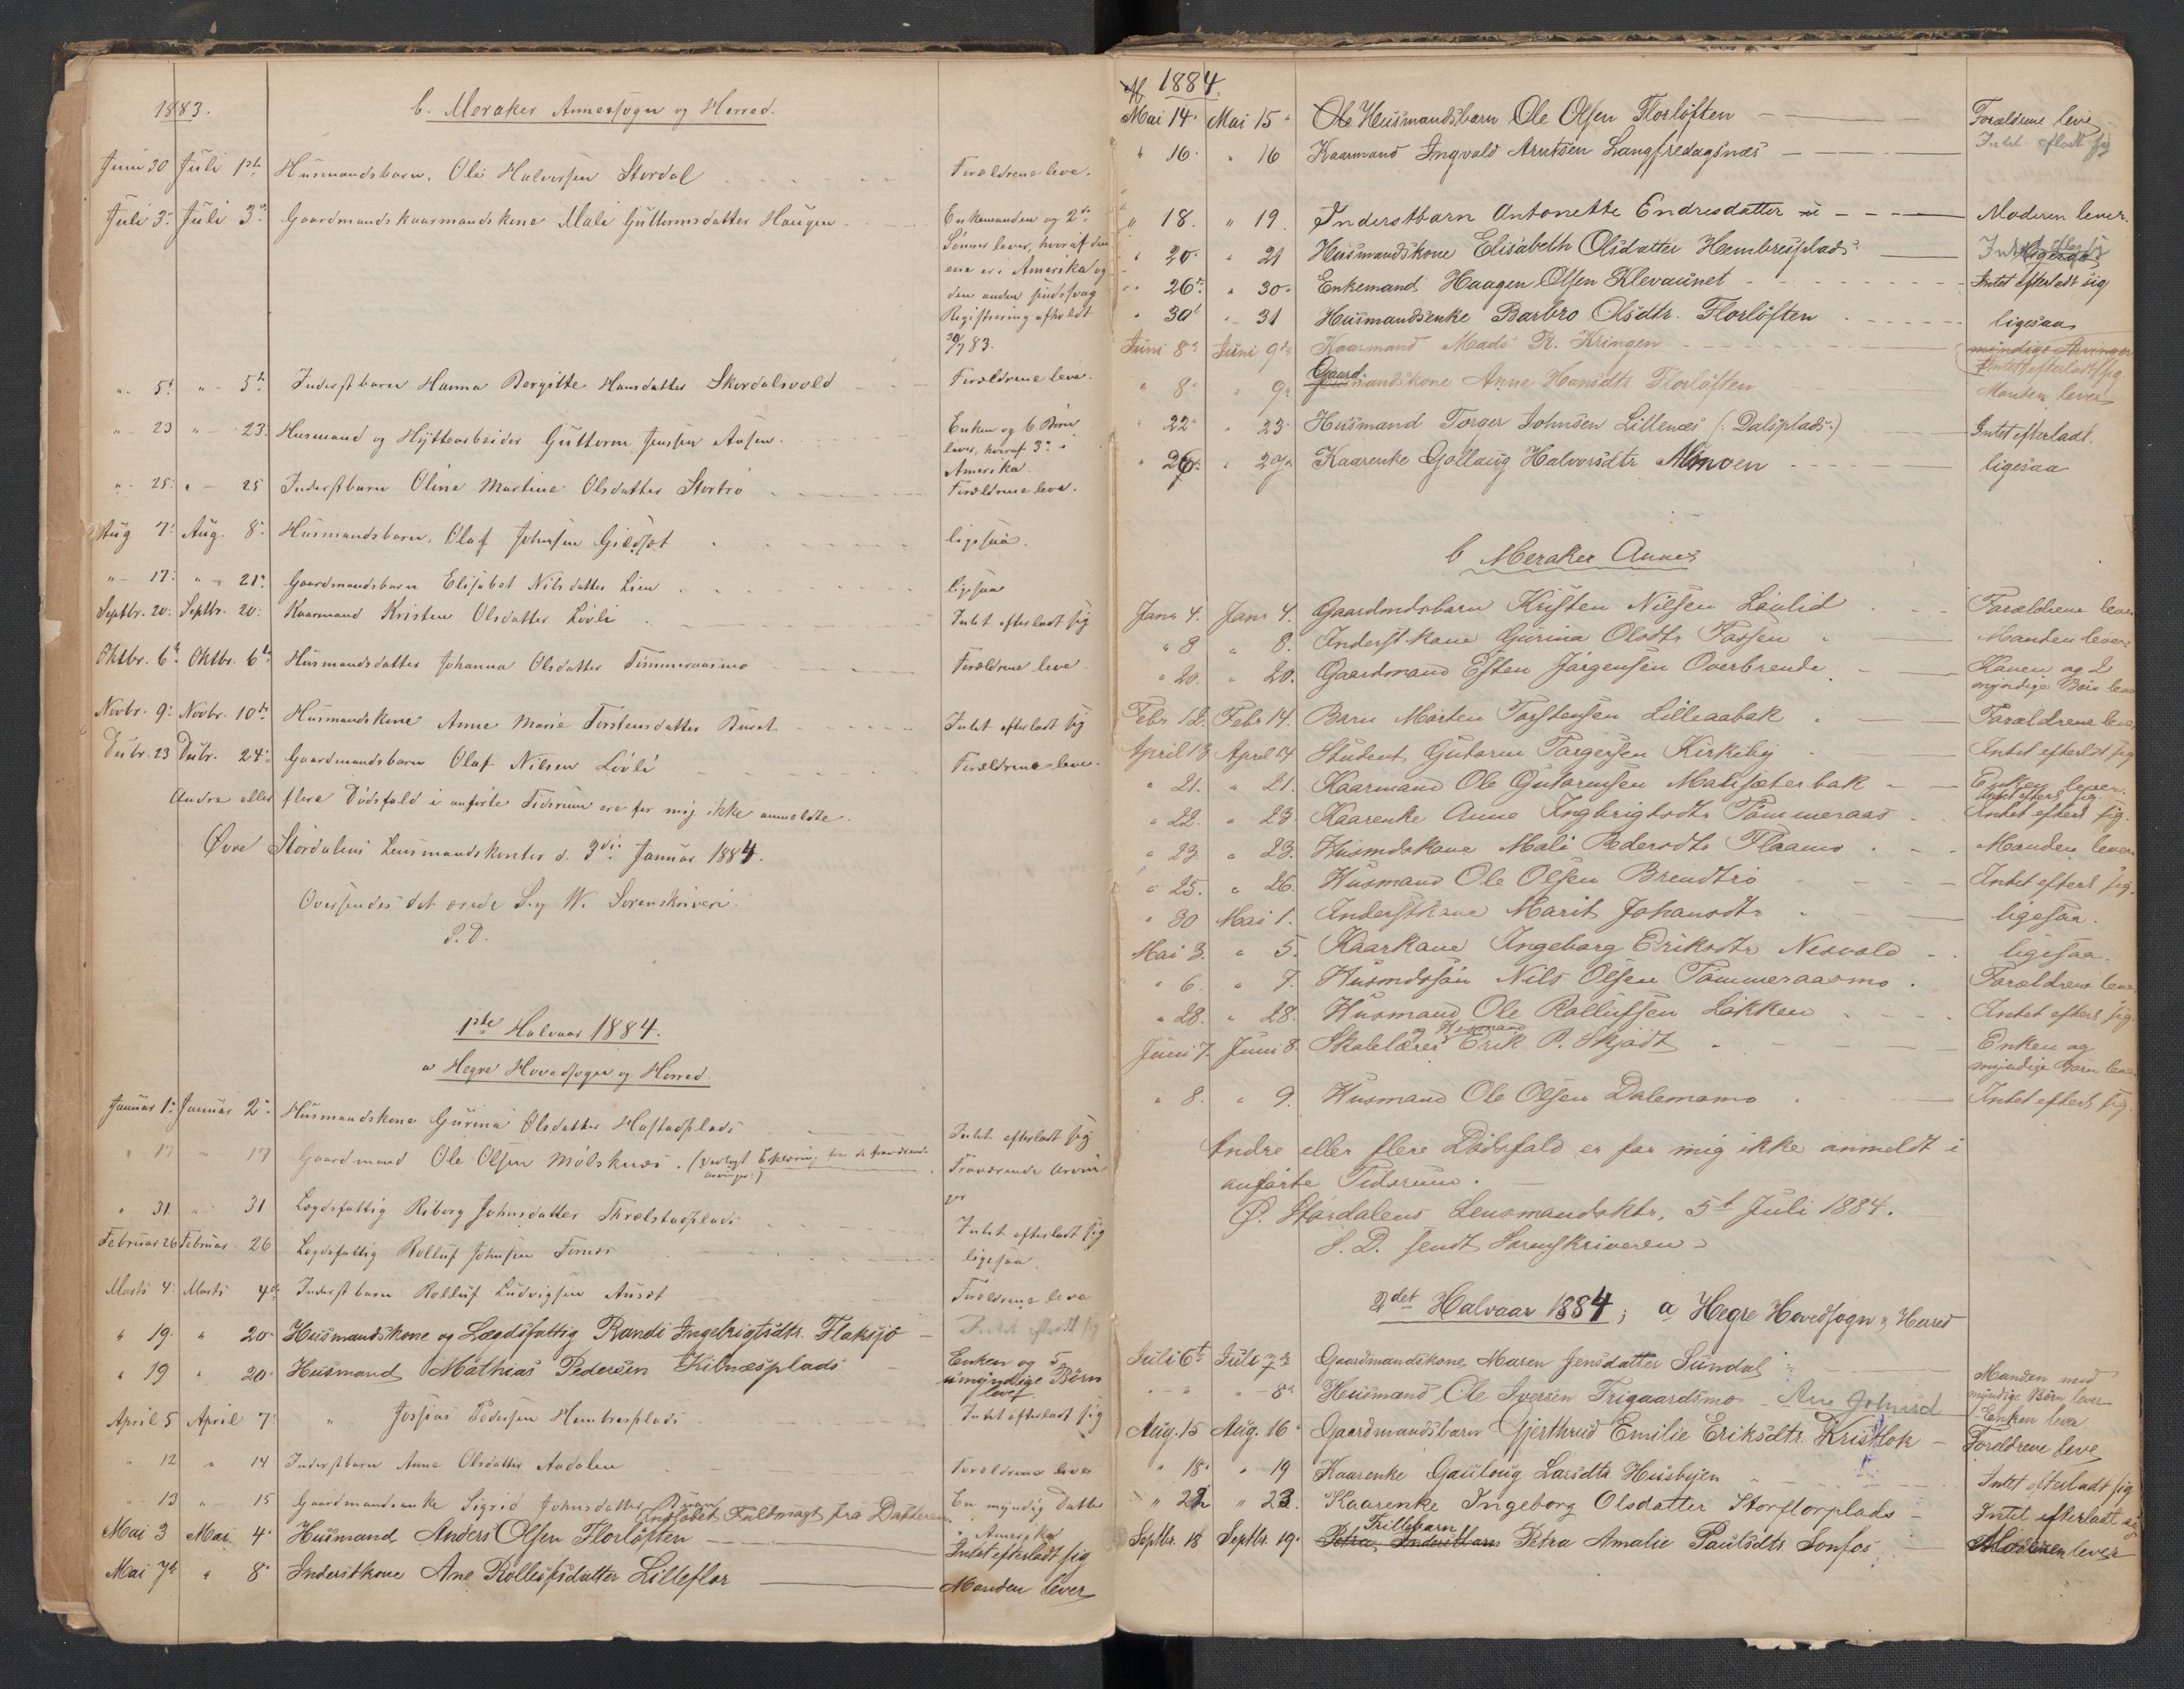 1883.
b. Meraker Annexsogn og Herred.
Juni 30 Juli 1ste Husmandsbarn, Ole Halvorsen Stordal Forældrene leve.
Juli 3. Juli 3. Gaardmandskaarmandskone Mali Guttormsdatter Haugen Enkemanden og 2de
Sönner lever, hvoraf den
ene er i Amerika og
den anden sindssvag
Registrering afholdt
30/7 83.
" 5t " 5t Inderstbarn Hanna Bergitte Hansdatter Skordalsvold Forældrene leve.
" 23 " 23. Husmand og Hyttearbeider Guttorm Jensen Aasen. Enken og 6 Börn
lever, hvoraf 3 i
Amerika
" 25. " 25 Inderstbarn Oline Martine Olsdatter Stortrö Forældrene leve.
Aug 7. Aug. 8. Husmandsbarn, Olaf Johnsen Gilset ligesaa.
" 17. " 21. Gaardmandsbarn Elisabet Nilsdatter Lien ligesaa
Septbr. 20. Septbr. 20. Kaarmand Kristen Olsdatter Lövli Intet efterladt sig
Oktbr. 6t. Oktbr. 6t. Husmandsdatter Johanna Olsdatter Tömmeraasmo Forældrene leve
Novbr. 9. Novbr. 10de Husmandskone Anne Marie Torstensdatter Intet efterladt sig
Decbr. 23 Decbr. 24. Gaardmandsbarn Olaf Nilsen Lövli Forældrene leve.
Andre eller flere Dödsfald i anförte Tidsrum ere for mig ikke anmeldte.
Övre Stördalens Lensmandskontor d. 3die Januar 1884.
Oversendes det ærede S. og N. Sorenskriveri.
S. D.
1ste Halvaar 1884.
a Hegre Hovedsogn og Herred.
Januar 1. Januar 2. Husmandskone Gurina Olsdatter Hofstadplads Intet efterladt sig
" 17 " 17 Gaardmand Ole Olsen Mölsknæs. Fraværende Arvin-
ger
" 31. " 31 Lægdsfattig Riborg Johnsdatter Thrœlstadplads Intet efterladt sig
Februar 26 Februar 26 Lægdsfattig Rolluf Johnsen Fornes ligesaa
Marts 4. Marts 4de Inderstbarn Rolluf Ludvigsen Auset Forældrene leve
" 19. " 20. Husmandskone og Lægdsfattig Randi Ingebrigtsdtr. Flaksjö Intet efterladt sig
" 19 " 20. Husmand Mathias Pedersen Kilnæsplads Enken og 5
umyndige Börn
lever
April 5 April 7. " Josias Pedersen Hembresplads Intet efterladt sig
" 12 " 14 Inderstbarn Anne Olsdatter Aadalen Forældrene leve
" 13 " 15 Gaardmandsenke Sigrid Johnsdatter En myndig Datter
indløbet Fuldmagt fra Datteren. i Amerika
Mai 3 Mai 4. Husmand Anders Olsen Florlöften Intet efterladt sig
Mai 7de " 8. Inderstkone Ane Rollufsdatter Lilleflor Manden lever
1884.
Mai 14. Mai 15. Ole Husmandsbarn Ole Olsen Florlöften Forældrene leve
" 16. " 16 Kaarmand Ingvald Arntsen Langfredagsnæs Intet efladt sig
" 18. " 19. Inderstbarn Antonette Endresdatter Moderen lever.
" 20. " 21 Husmandskone Elisabeth Olsdatter Hembresplads
" 26. " 30. Enkemand Haagen Olsen Klevaunet Intet efterladt sig
" 30. " 31 Husmandsenke Barbro Olsdtr. Florlöften ligesaa
Juni 8. Juni 9de Kaarmand Mads R. Kringen myndige Arvinger
Intet efterladt sig.
" 8. " 9. Gaardmandskone Anne Hansdtr Florlöften Manden lever
" 22. " 23. Husmand Torger Johnsen Lillenæs (: Dalsplads :) Intet efterladt.
" 26. " 27. Kaarenke Gollaug Halvorsdtr Moen ligesaa
b Meraker Annex
Janr 4. Janr 4. Gaardmdsbarn Kristen Nilsen Lövlid Forældrene leve
" 8 " 8. Inderstkone Gurina Olsdtr Fossen Manden lever
" 20. " 20. Gaardmand Esten Jörgensen Overbrende Konen og 2
myndige Börn leve
Febr 12. Febr 14. Barn Morten Torstensen Lilleaabak Forældrene leve
April 13 April 14 Student Gutorm Torgersen Kirkeby Intet efterladt sig
" 21. " 21. Kaarmand Ole Gutormsen Malisæterbak Enken lever.
" 22. " 23. Kaarenke Anne Ingbrigtsdtr Tömmeraas Intet efterl sig.
" 23. " 23. Husmdskone Mali Pedersdtr Flaamo Manden lever
" 25. " 26. Husmand Ole Olsen Brendtrö Intet efterl sig.
" 30 Mai 1. Inderstkone Marit Johansdtr ligesaa.
Mai 3. " 5. Kaarkone Ingeborg Eriksdtr Nesvold ligesaa.
" 6. " 7. Husmdssön Nils Olsen Tömmeraasmo. Forældrene leve
" 28. " 28. Husmand Ole Rollufsen Løkken Intet efterl sig.
Juni 7. Juni 8. Skolelærer og Husmand Erik P. Skjödt Enken og
myndige Börn leve
" 8. " 9. Husmand Ole Olsen Dalemomo Intet efterl sig.
Andre eller flere Dödsfald er for mig ikke anmeldt i
anförte Tidsrum.
Ö. Stördalens Lensmandsktr. 5t Juli 1884.
S. D. sendt Sorenskriveren
2det Halvaar 1884; a Hegre Hovedsogn og Herred
Juli 6t Juli 7de Gaardmandskone Maren Jensdatter Sundal Manden med
myndige Börn lever
" " " 8. Husmand Ole Iversen Trigaardsmo Ane Johnsd Enken lever
Aug. 15 Aug. 16. Gaardmandsbarn Gjerthrud Emilie Eriksdtr. Kristlok Foreldrene leve
" 18. " 19 Kaarenke Gauloug Larsdtr Husbyen Intet efterladt sig
" 22 " 23. Kaarenke Ingeborg Olsdatter Storflorplads Intet efterladt sig
Septbr. 18 Septbr. 19. Petra Inderstbarn Trillebarn Petra Amalie Paulsdtr Sonfos Moderen lever